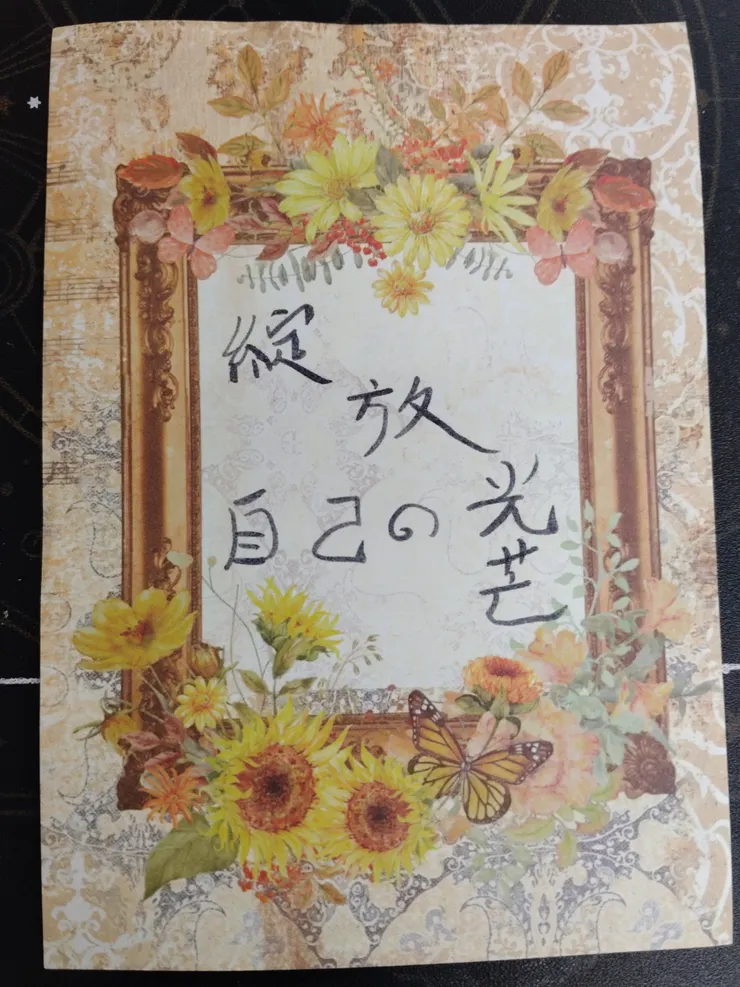 綻放
自己の光芒